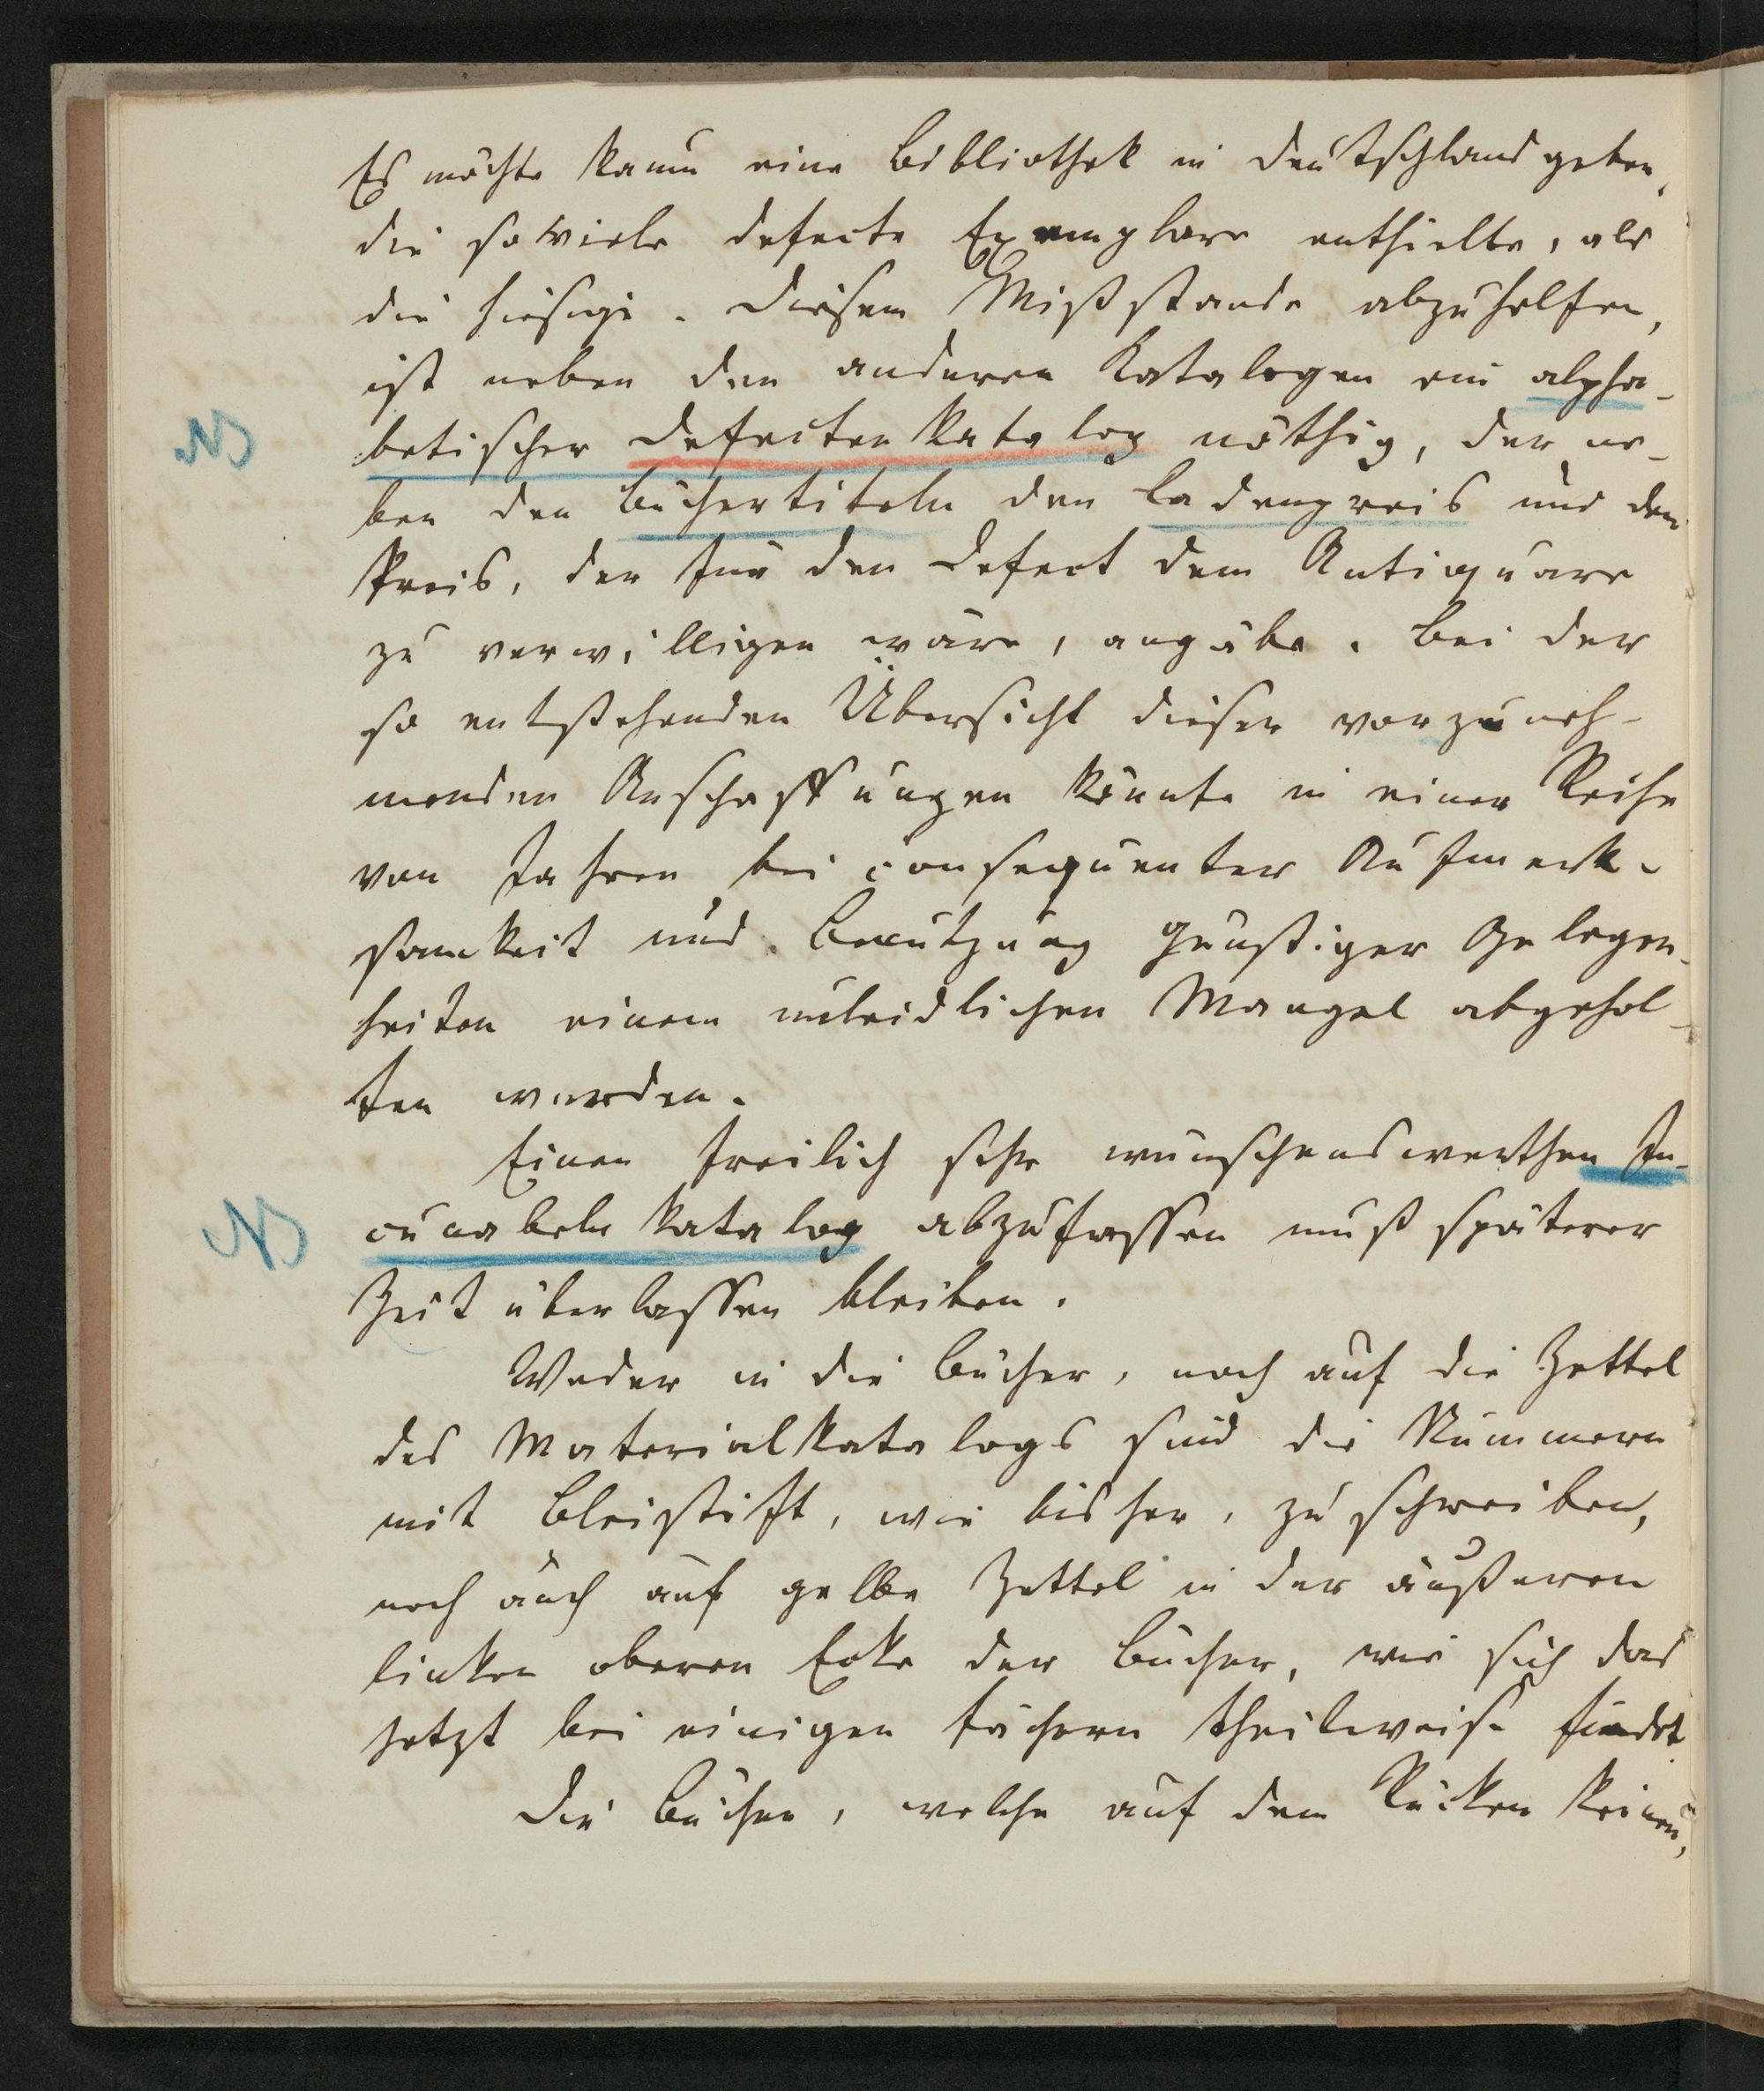 Es möchte kaum eine Bibliothek in Deutschland geben,
die so viele defecte Exemplare enthielte, als
die hiesige. Diesem Mißstande abzuhelfen,
ist neben den anderen Katalogen ein alpha-
NB
betischer Defectenkatalog nöthig, der ne-
ben den Büchertiteln den Ladenpreis und den
Preis, der für den Defect dem Antiquare
zu verwilligen wäre, angäbe. Bei der
so entstehenden Übersicht dieser vorzuneh-
menden Anschaffungen könnte in einer Reihe
von Jahren bei consequenter Aufmerk-
samkeit und Benutzung günstiger Gelegen-
heiten einem unleidlichen Mangel abgehol-
fen werden.
Einen freilich sehr wünschenswerthen In-
NB
cunabelnkatalog abzufassen muß späterer
Zeit überlassen bleiben.
Weder in die Bücher, noch auf die Zettel
des Materialkatalogs sind die Nummern
mit Bleistift, wie bisher, zu schreiben,
noch auch auf gelbe Zettel in der äußeren
linken oberen Ecke der Bücher, wie sich das
jetzt bei einigen Fächern theilweise findet
Die Bücher, welche auf dem Rücken keinen,